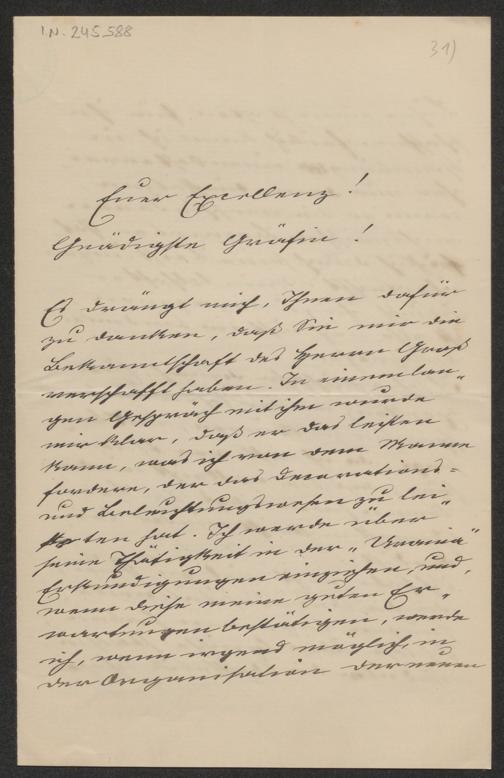 I.N. 245.588
31)
Euer Excellenz!
Gnädigste Gräfin!
Es drängt mich, Ihnen dafür
zu danken, daß Sie mir die
Bekanntschaft des Herrn Groß
verschafft haben. In einem lan-
gen Gespräch mit ihm wurde
mir klar, daß er das leisten
kann, was ich von dem Manne
fordere, der das Decorations-
und Beleuchtungswesen zu lei-
ten hat. Ich werde über
seine Thätigkeit in der „Urania"
Erkundigungen einziehen und,
wenn diese meine guten Er-
wartungen bestätigen, werde
ich, wenn irgend möglich, in
der Organisation der neuen